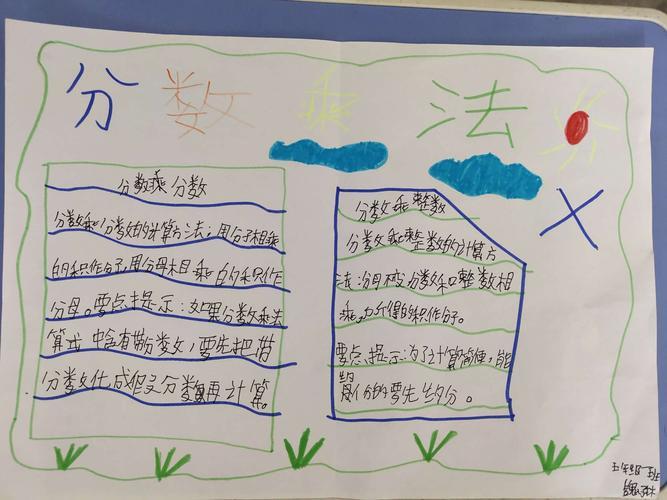 分数乘法
分数乘分数
分数乘分数的计算方法：用分子相乘
的积作分子，用分母相乘的积作
分母。要点提示：如果分数乘法
算式中含有带分数，要先把带
分数化成假分数再计算。
分数乘整数
分数乘整数的计算方
法：分母不变，分数和整数相
乘，的积作分子。
要点提示：为了计算简便，能
约分的要先约分。
五年级 班